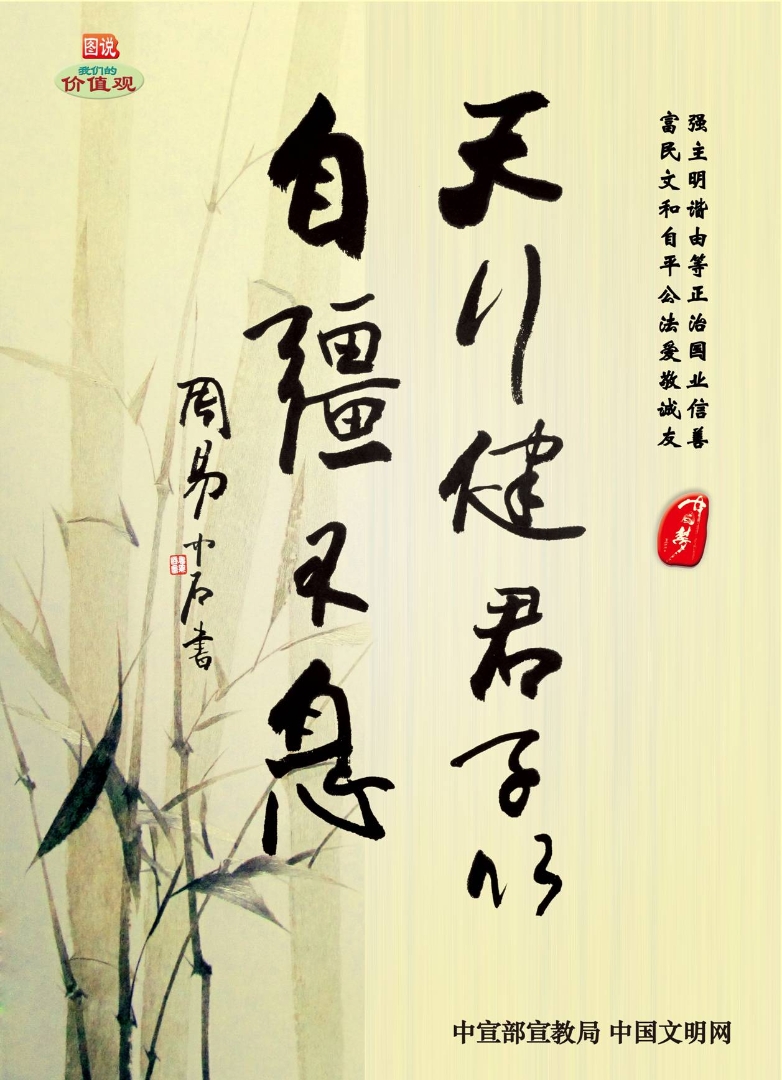 图说
我们的
价值观
强主明谐由等正治国业信善
富民文和自平公法爱敬诚友
中国梦
天行健君子以
自彊不息
周易中石书
中宣部宣教局 中国文明网